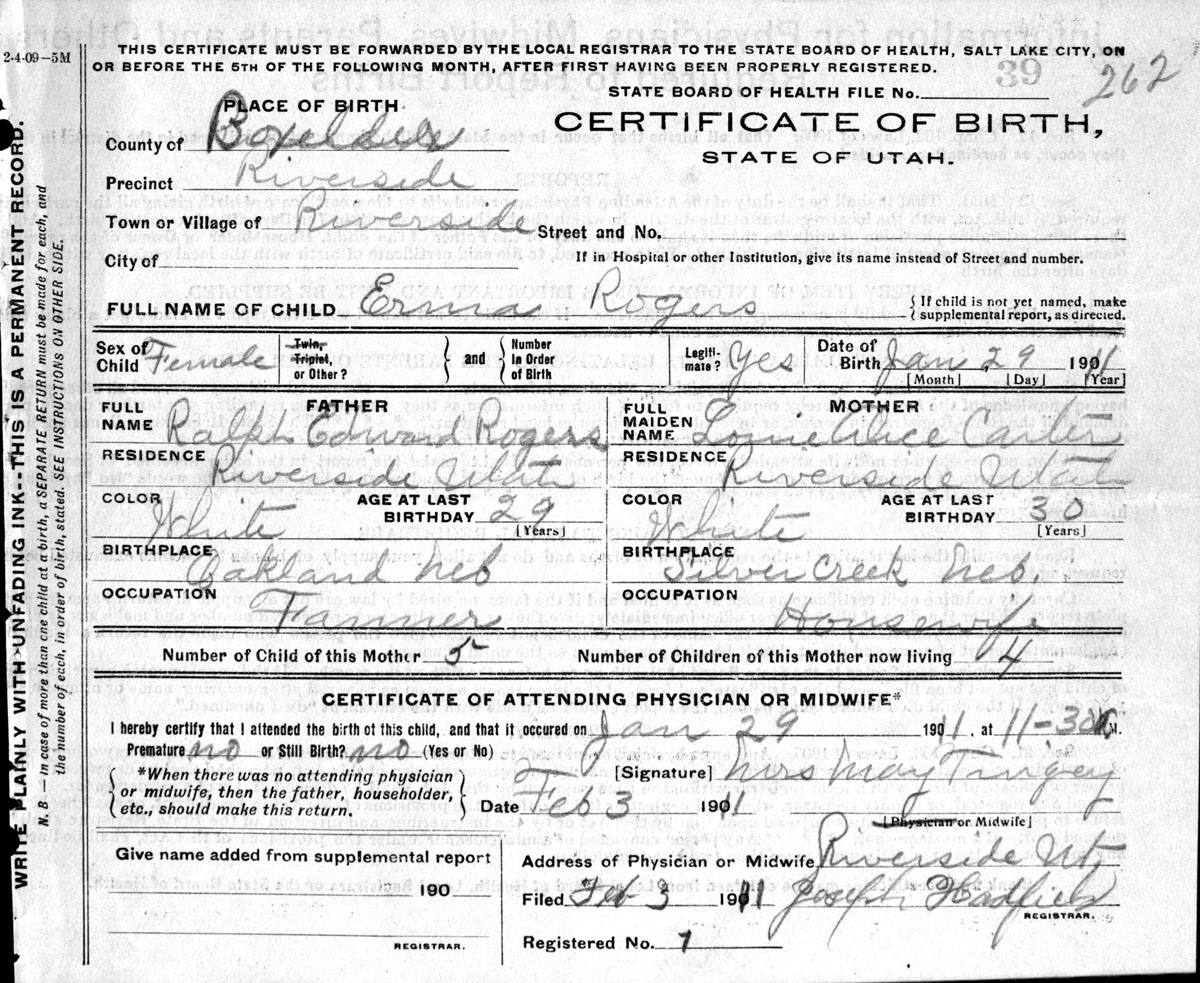 2-4-09-5M
THIS CERTIFICATE MUST BE FORWARDED BY THE LOCAL REGISTRAR TO THE STATE BOARD OF HEALTH, SALT LAKE CITY, ON
OR BEFORE THE 5TH OF THE FOLLOWING MONTH, AFTER FIRST HAVING BEEN PROPERLY REGISTERED.
39
262
STATE BOARD OF HEALTH FILE No.
PLACE OF BIRTH
CERTIFICATE OF BIRTH,
STATE OF UTAH.
County of Boxelder
Precinct Riverside
Town or Village of Riverside Street and No.
City of If in Hospital or other Institution, give its name instead of Street and number.
FULL NAME OF CHILD Erma Rogers { If child is not yet named, make
supplemental report, as directed.
Sex of Child Female Twin, Triplet, or Other? } and { Number in Order of Birth Legiti-mate? Yes Date of Birth Jan. 29 1911
[Month] [Day] [Year]
FATHER MOTHER
FULL NAME Ralph Edward Rogers FULL MAIDEN NAME Carter
RESIDENCE Riverside Utah RESIDENCE Riverside Utah
COLOR White AGE AT LAST BIRTHDAY 29 [Years] COLOR White AGE AT LAST BIRTHDAY 30 [Years]
BIRTHPLACE Oakland Neb BIRTHPLACE Silver Creek Neb
OCCUPATION Farmer OCCUPATION Housewife
Number of Child of this Mother 5 Number of Children of this Mother now living 4
CERTIFICATE OF ATTENDING PHYSICIAN OR MIDWIFE*
I hereby certify that I attended the birth of this child, and that it occured on Jan 29 1911, at 11-30 M.
Premature no or Still Birth? no (Yes or No)
[Signature] Mrs May Tingey
*When there was no attending physician
or midwife, then the father, householder,
etc., should make this return.
Date Feb 3 1911
[Physician or Midwife]
Give name added from supplemental report
190
REGISTRAR.
Address of Physician or Midwife Riverside Ut.
Filed Feb 3 1911 Joseph Hadfield
REGISTRAR.
Registered No. 1
WRITE PLAINLY WITH UNFADING INK--THIS IS A PERMANENT RECORD.
N. B. — in case of more than one child at a birth, a SEPARATE RETURN must be made for each, and
the number of each, in order of birth, stated. SEE INSTRUCTIONS ON OTHER SIDE.